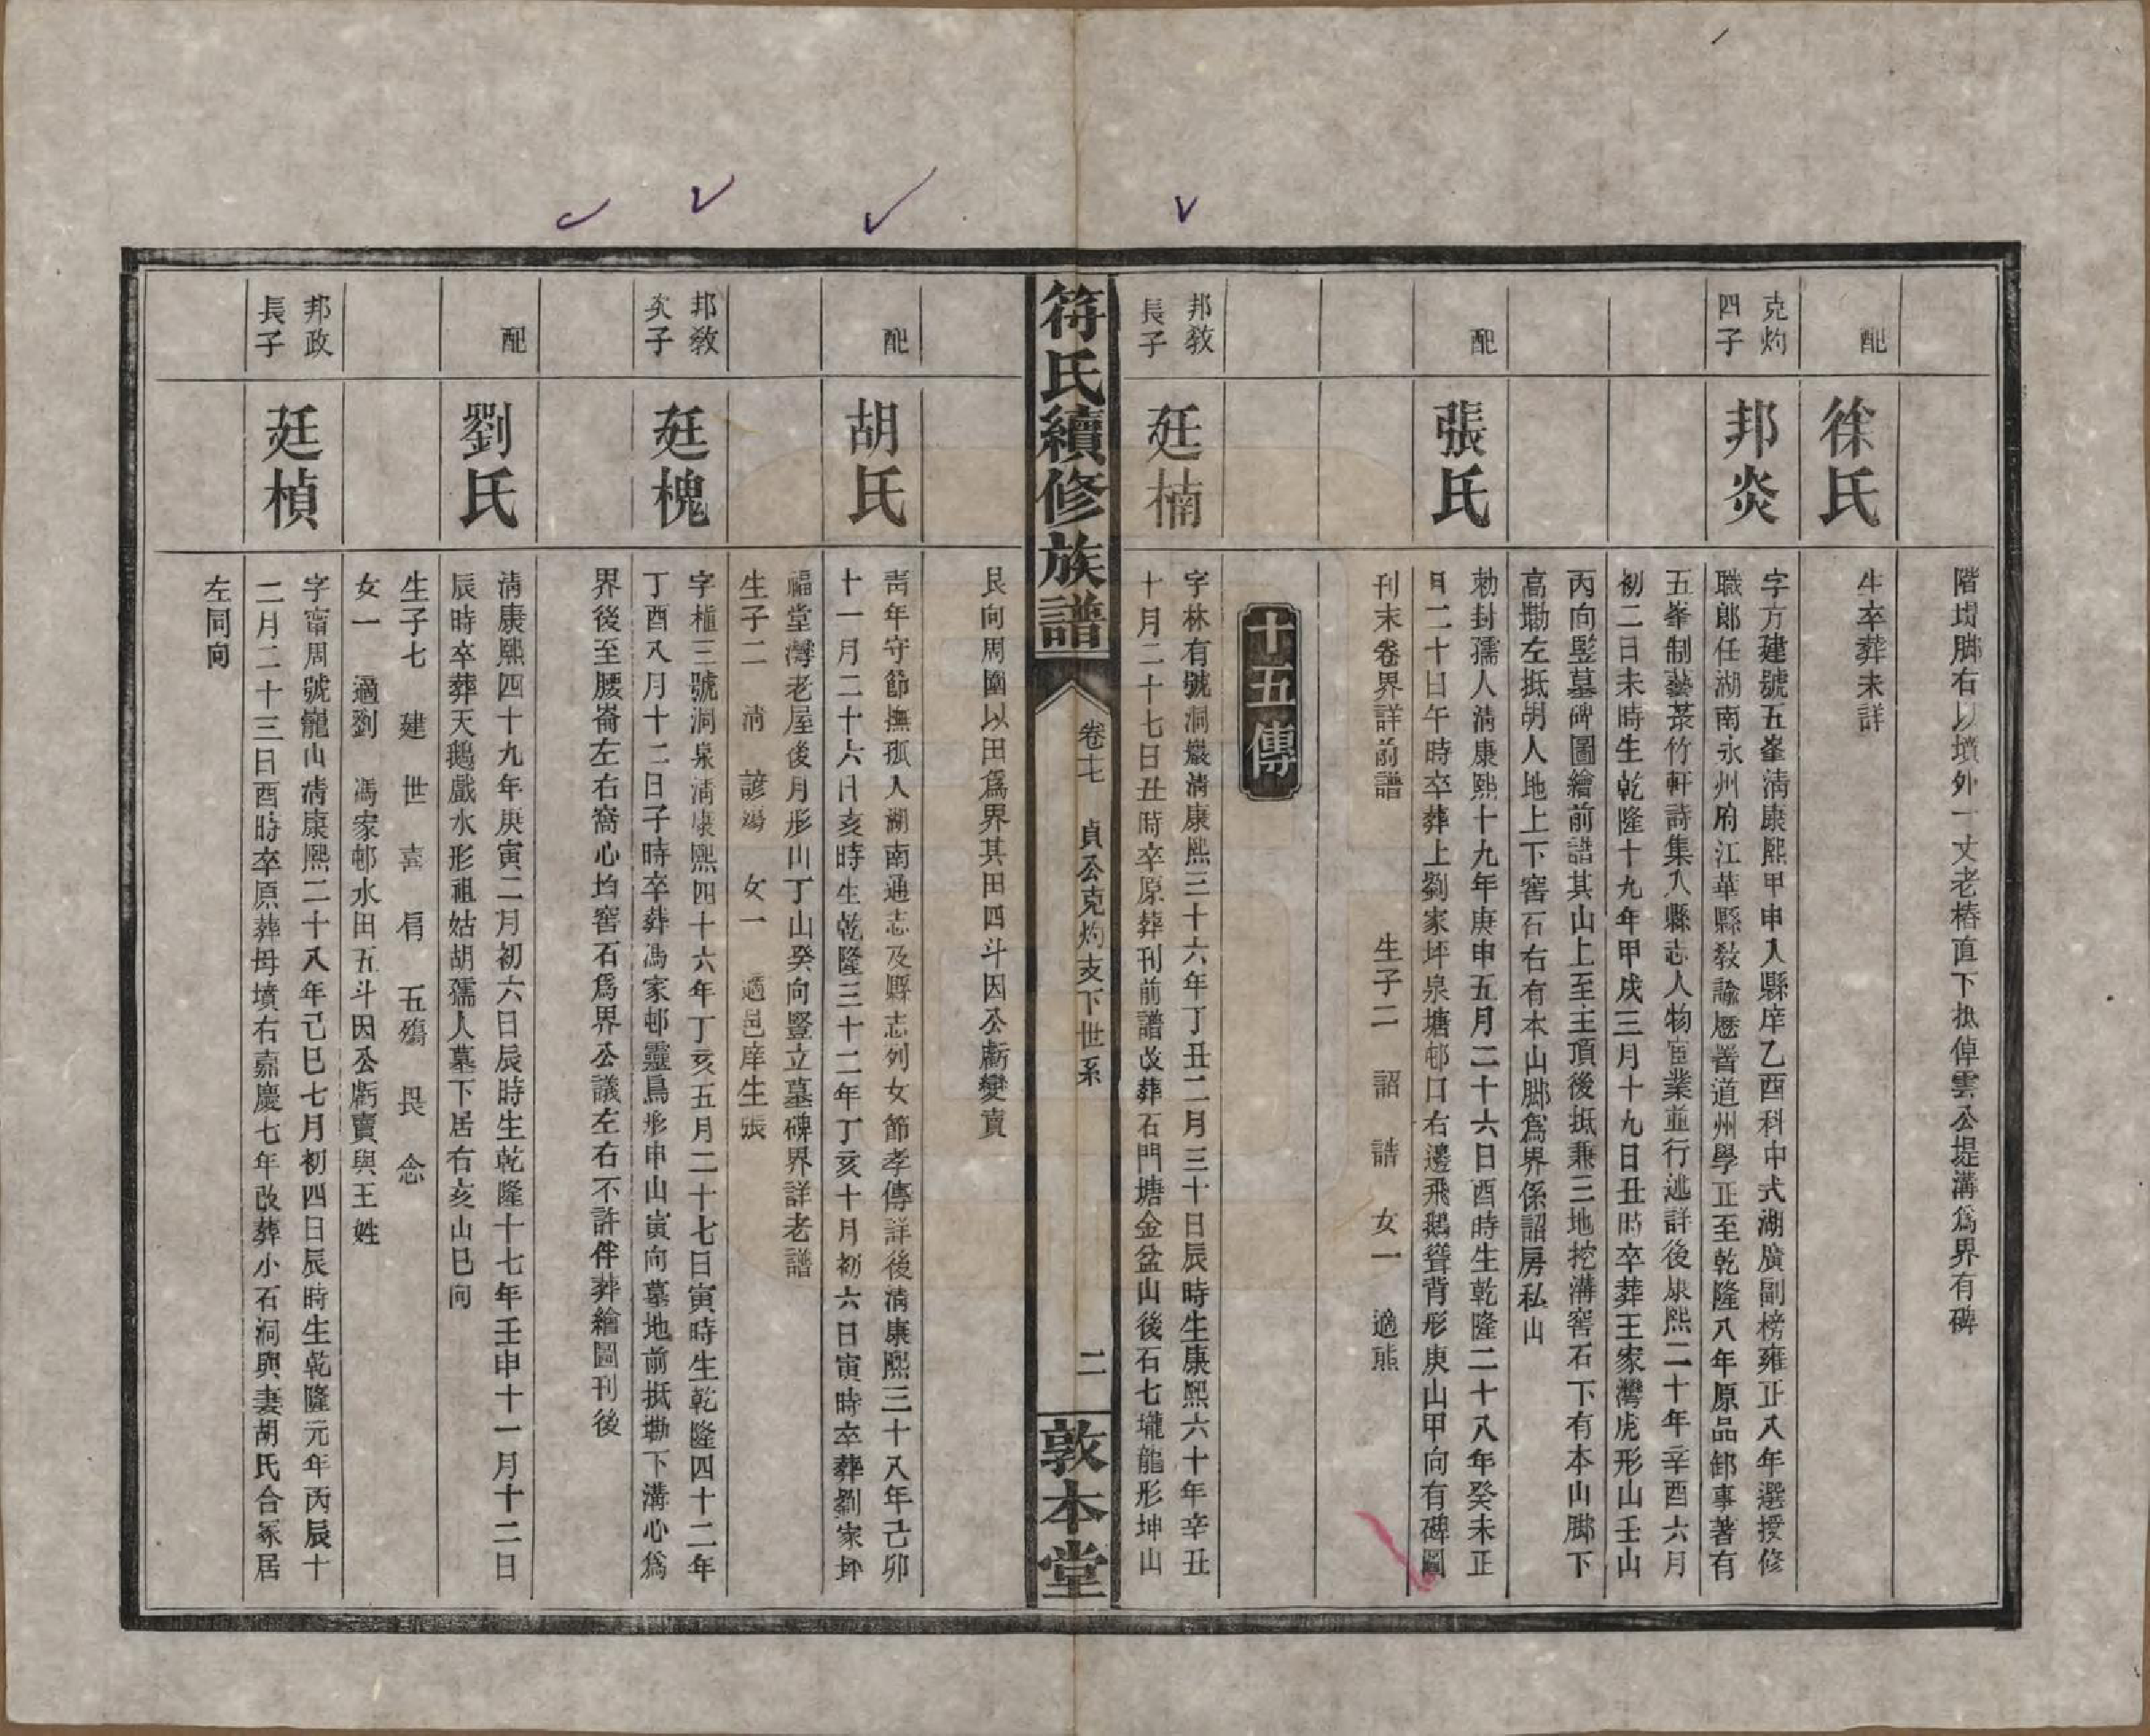 階墳脚右以墳外一丈老樁直下抵倬雲公堤溝爲界有碑
配
徐氏
生卒葬未詳
克灼
四子
邦炎
字方建號五峯淸康熙甲申入縣庠乙酉科中式湖廣副榜雍正八年選授修
職郎任湖南永州府江華縣敎諭歷署道州學正至乾隆八年原品卸事著有
五峯制藝菉竹軒詩集入縣志人物宦業並行述詳後康熙二十年辛酉六月
初二日未時生乾隆十九年甲戌三月十九日丑時卒葬王家灣虎形山壬山
丙向竪墓碑圖繪前譜其山上至主頂後抵兼三地挖溝窖石下有本山脚下
高墈左抵胡人地上下窖石右有本山脚爲界係詔房私山
配
張氏
勅封孺人淸康熙十九年庚申五月二十六日酉時生乾隆二十八年癸未正
月二十日午時卒葬上劉家坪泉塘邨口右邊飛鵝聳背形庚山甲向有碑圖
刊末卷界詳前譜 生子二 詔 誥 女一 適熊
十五傳
邦敎
長子
廷楠
字林有號洞巖淸康熙三十六年丁丑二月三十日辰時生康熙六十年辛丑
十月二十七日丑時卒原葬刊前譜改葬石門塘金盆山後石七壠龍形坤山
符氏續修族譜
卷十七 貞公克灼支下世系 二
敦本堂
艮向周圍以田爲界其田四斗因公虧變賣
配
胡氏
靑年守節撫孤入湖南通志及縣志列女節孝傳詳後淸康熙三十八年己卯
十一月二十六日亥時生乾隆三十二年丁亥十月初六日寅時卒葬劉家坪
福堂灣老屋後月形山丁山癸向豎立墓碑界詳老譜
生子二 淸 諺殤 女一 適邑庠生張
邦敎
次子
廷槐
字植三號洞泉淸康熙四十六年丁亥五月二十七日寅時生乾隆四十二年
丁酉八月十二日子時卒葬馮家邨靈鳥形申山寅向墓地前抵墈下溝心爲
界後至腰崙左右窩心均窖石爲界公議左右不許伴葬繪圖刊後
配
劉氏
淸康熙四十九年庚寅二月初六日辰時生乾隆十七年壬申十一月十二日
辰時卒葬天鵝戲水形祖姑胡孺人墓下居右亥山巳向
生子七 建 世 喜 肩 五殤 畏 念
女一 適劉 馮家邨水田五斗因公虧賣與王姓
邦政
長子
廷楨
字甯周號龍山淸康熙二十八年己巳七月初四日辰時生乾隆元年丙辰十
二月二十三日酉時卒原葬母墳右嘉慶七年改葬小石洞與妻胡氏合冢居
左同向